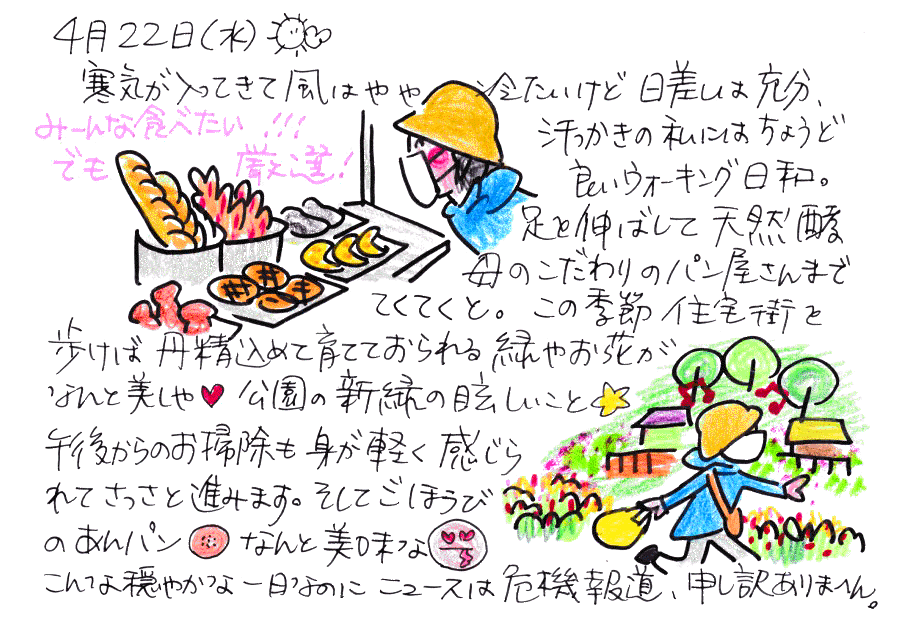 4月22日(水)
寒気が入ってきて風はやや 冷たいけど 日差しは充分、
みーんな食べたい!!!
でも 厳選!
汗っかきの私にはちょうど
良いウォーキング日和。
足を伸ばして天然酵
母のこだわりのパン屋さんまで
てくてくと。この季節 住宅街を
歩けば 丹精込めて育てておられる 緑やお花が
なんと美しや 公園の新緑の眩しいこと
午後からのお掃除も身が軽く感じら
れてさっさと進みます。そしてごほうび
のあんパン なんと美味な
こんな穏やかな一日なのに ニュースは危機報道、申し訳ありません。